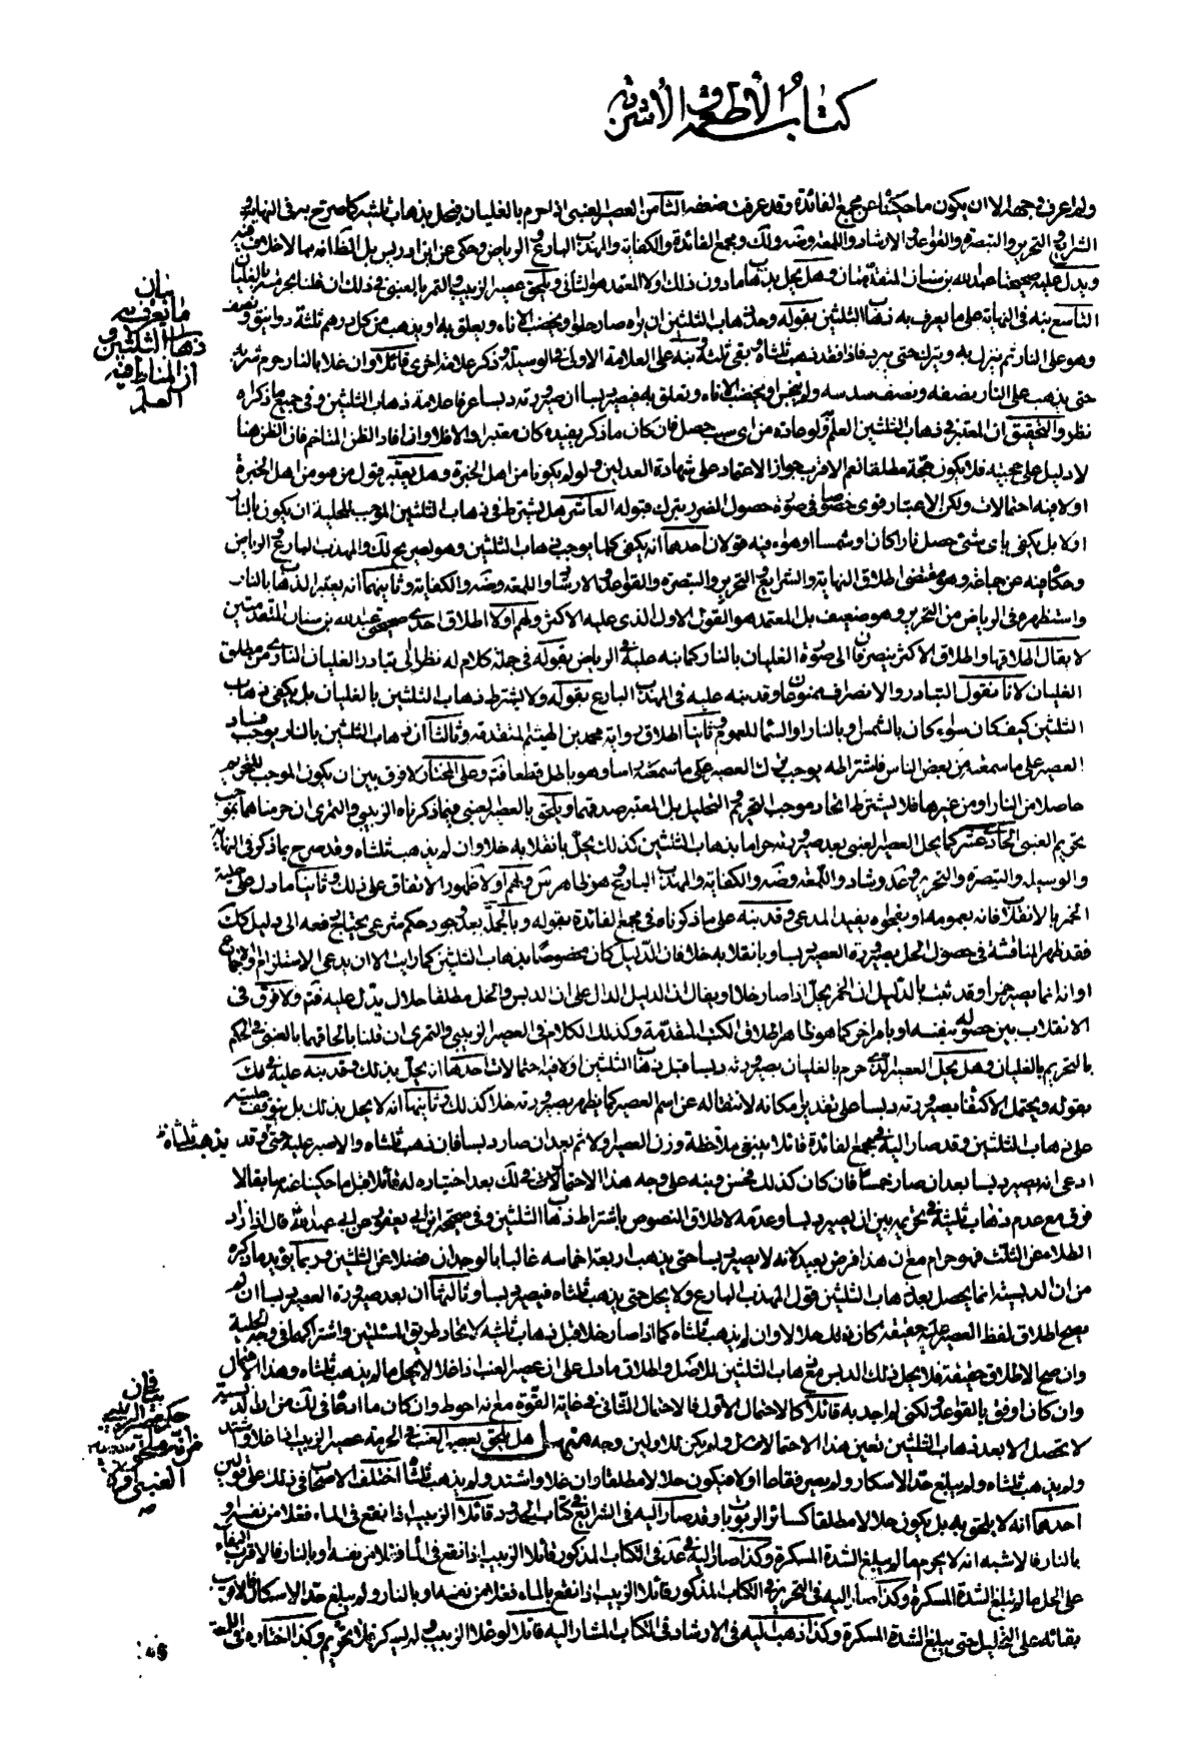 كتاب الأطعمة والأشربة
ولم اعرف وجهها الا ان يكون ما حكيناه عن مجمع الفائدة وقد عرفت ضعفه الثامن العصير العنبى اذا حرم بالغليان فيحل بذهاب ثلثيه كما صرح به فى النهاية و
الشرايع والتحرير والتبصرة والقواعد والارشاد واللمعة وضه ولك ومجمع الفائدة والكفاية والمهذب البارع والرياض وحكى عن ابن ادريس بل الظاهر انه مما لا خلاف فيه
ويدل عليه صحيحتا عبد الله بن سنان المتقدمتان وهل يحل بذهاب ما دون ذلك اولا المعتمد هو الثانى ويلحق عصير الزبيب والتمر بالعنبى فى ذلك ان قلنا بحرمته بالغليان
التاسع نبه فى النهاية على ما يعرف به ذهاب الثلثين بقوله وحد ذهاب الثلثين ان يراه صار حلوا ويخضب الاناء ويعلق به او يذهب من كل درهم ثلثة دوانيق ونصف
وهو على النار ثم ينزل به ويترك حتى يبرد فاذا فقد ذهب ثلثاه وبقى ثلثه ونبه على العلامة الاولى فى الوسيلة وذكر علامة اخرى قائلا وان غلا بالنار حرم شربه
حتى يذهب على النار نصفه ونصف سدسه ولم ينجس او يخضب الاناء وتعلق به فيصير دبسا ان صيرورته دبسا عرفا علامة ذهاب الثلثين وفى جميع ما ذكراه
نظر والتحقيق ان المعتبر فى ذهاب الثلثين العلم ولو عادة من اى سبب حصل فان كان ما ذكر يفيده كان معتبرا والا فلا وان افاد الظن المتاخم فان الظن هنا
لا دليل على حجيته فلا يكون حجة مطلقا نعم الاقرب جواز الاعتماد على شهادة العدلين ولو لم يكونا من اهل الخبرة وهل يعتبر قول من هو من اهل الخبرة
اولا فيه احتمالات ولكن الاعتبار قوى خصوصا فى صورة حصول الضرر بترك قبوله العاشر هل يشترط فى ذهاب الثلثين الموجب للحلية ان يكون بالنار
اولا بل يكفى باى شئ حصل نارا كان او شمسا او هواء فيه قولان احدهما انه يكفى كلما يوجب ذهاب الثلثين وهو لصريح لك والمهذب البارع والرياض
وحكاه فيه عن جماعة وهو مقتضى اطلاق النهاية والشرايع والتحرير والتبصرة والقواعد والارشاد واللمعة وضه والكفاية وثانيهما انه يعتبر الذهاب بالنار
واستظهره فى الرياض من التحرير وهو ضعيف بل المعتمد هو القول الاول الذى عليه الاكثر ولهم اولا اطلاق احدى صحيحتى عبد الله بن سنان المتقدمتين
لا يقال اطلاقها واطلاق الاكثر ينصرفان الى صورة الغليان بالنار كما نبه عليه فى الرياض بقوله فى جملة كلام له نظرا الى تبادر الغليان النارى من مطلق
الغليان لانا نقول التبادر والانصراف ممنوعان وقد نبه عليه فى المهذب البارع بقوله ولا يشترط ذهاب الثلثين بالغليان بل يكفى ذهاب
الثلثين كيف كان سواء كان بالشمس او بالنار او السماء للعموم وثانيا اطلاق رواية محمد بن الهيثم المتقدمة وثالثا ان ذهاب الثلثين بالنار يوجب فساد
العصير على ما سمعته من بعض الناس فاشتراطه يوجب ترك العصير على ما سمعته اسا وهو باطل قطعا فتم وعلى المختار لا فرق بين ان يكون الموجب للتحريم
حاصلا من النار او من غيرها فلا يشترط اتحاد موجب التحريم والتحليل بل المعتبر صدقهما ويلحق بالعصير العنبى فيما ذكرناه الزبيبى والتمرى ان حرمناهما بموجب
تحريم العنبى الحادى عشر كما يحل العصير العنبى بعد صيرورته حراما بذهاب الثلثين كذلك يحل بانقلابه خلا وان لم يذهب ثلثاه وقد صرح بما ذكر فى النهاية
والوسيلة والتبصرة والتحرير وعد وشاد واللمعة وضه والكفاية والمهذب البارع وهو ظاهر س ولهم اولا ظهور الاتفاق على ذلك وثانيا ما دل على حلية
الخمر بالانقلاب فانه بعمومه او بفحواه يفيد المدعى وقد نبه على ما ذكرناه فى مجمع الفائدة بقوله وبالجملة بعد وجود حكم شرعى يحتاج رفعه الى دليل كك
فقد ظهر المناقشة فى حصول الحل بصيرورة العصير دبسا وبانقلابه خلا فان الدليل كان مخصوصا بذهاب الثلثين كما رايت الا ان يدعى الاستلزام والاجماع
او انه انما يصير خمرا وقد ثبت بالدليل ان الخمر يحل اذا صار خلا او يقال ان الدليل الدال على ان الدبس والخل مطلقا حلال يدل عليه فتم ولا فرق فى
الانقلاب بين حصوله بنفسه او بامر اخر كما هو ظاهر اطلاق الكتب المتقدمة وكذلك الكلام فى العصير الزبيبى والتمرى ان قلنا بالحاقهما بالعنبى فى الحكم
بالتحريم بالغليان وهل يحل العصير الذى حرم بالغليان بصيرورته دبسا قبل ذهاب الثلثين اولا فيه احتمالات احدها انه يحل بذلك وقد نبه عليه فى لك
بقوله ويحتمل الاكتفاء بصيرورته دبسا على تقدير امكانه لانتقاله عن اسم العصير كما يطهر بصيرورته خلا كذلك وثانيها انه لا يحل بذلك بل يتوقف حليته
على ذهاب الثلثين وقد صار اليه فى مجمع الفائدة قائلا ينبغى ملاحظة وزن العصير اولا ثم بعد ان صار دبسا فان ذهب ثلثاه والا صبر عليه حتى وقد يذهب ثلثاه
ادعى انه يصير دبسا بعد ان صار خمسا فان كان كذلك فحسن ونبه على وجه هذا الاحتمال فى لك بعد اختياره له قائلا قبل ما حكينا عنه سابقا لا
فرق مع عدم ذهاب ثلثيه فى تحريمه بين ان يصير دبسا وعدمه لاطلاق النصوص باشتراط ذهاب الثلثين وفى صحيحة ابن ابى يعفور عن ابى عبد الله قال اذا زاد
الطلاء عن الثلث فهو حرام مع ان هذا فرض بعيد لانه لا يصير دبسا حتى يذهب اربعة اخماسه غالبا بالوجدان فضلا عن الثلثين وربما يؤيد ما ذكره
من ان الدبسية انما يحصل بعد ذهاب الثلثين قول المهذب البارع ولا يحل حتى يذهب ثلثاه فيصير دبسا وثالثها ان بعد صيرورة العصير دبسا ان لم
يصح اطلاق لفظ العصير عليه حقيقة كان ذلك حلالا وان لم يذهب ثلثاه كما اذا صار خلا قبل ذهاب ثلثيه لاتحاد طريق المسئلتين واشتراكهما فى وجه الحلية
وان صح الاطلاق حقيقة فلا يحل ذلك الدبس مع ذهاب الثلثين للاصل واطلاق ما دل على ان عصير العنب اذا غلا لا يحل ما لم يذهب ثلثاه وهذا الاحتمال
وان كان اوفق بالقواعد لكنى لم اجد به قائلا كالاحتمال الاول فالاحتمال الثانى فى غاية القوة مع انه احوط وان كان ما ادعاه فى لك من ان الدبسية
لا تحصل الا بعد ذهاب الثلثين تعين هذا الاحتمال ولم يكن للاولين وجه منهل هل يلحق بعصير العنب فى الحرمة عصير الزبيب اذا غلا واشتد
ولم يذهب ثلثاه ولم يبلغ حد الاسكار ولم يصير فقاعا اولا فيكون حلالا مطلقا وان غلا واشتد ولم يذهب ثلثاه اختلف الاصحاب فى ذلك على قولين
احدهما انه لا يلحق به بل يكون حلالا مطلقا كسائر الربوبات وقد صار اليه فى الشرايع فى كتاب الحدود قائلا الزبيب اذا نقع فى الماء فغلا من نفسه او
بالنار فالاشبه انه لا يحرم ما لم يبلغ الشدة المسكرة وكذا صار اليه فى عد فى الكتاب المذكور قائلا الزبيب اذا نقع فى الماء فغلا من نفسه او بالنار فالاقرب البقاء
على الحل ما لم يبلغ الشدة المسكرة وكذا صار اليه فى التحرير فى الكتاب المذكور قائلا الزبيب اذا نقع بالماء فغلا من نفسه او بالنار ولم يبلغ حد الاسكار فالاقرب
بقائه على التحليل حتى يبلغ الشدة المسكرة وكذا ذهب اليه فى الارشاد فى الكتاب المشار اليه قائلا لو غلا الزبيب ولم يسكر فلا تحريم وكذا اختاره فى اللمعة
بيان
ما يعرف به
ذهاب الثلثين و
ان المناط فيه
العلم
بيان
حكم عصير الزبيب
العنبى اولا